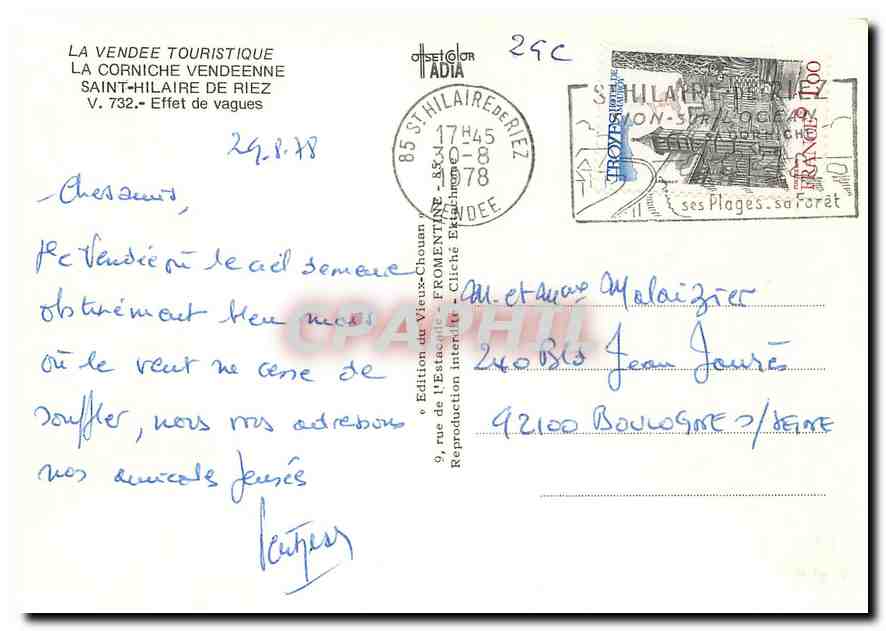 LA VENDEE TOURISTIQUE
LA CORNICHE VENDEENNE
SAINT-HILAIRE DE RIEZ
V. 732.- Effet de vagues
OFFSET COLOR
ADIA
29C
85 ST HILAIRE DE RIEZ
17H45
30-8
1978
VENDEE
ST HILAIRE-DE-RIEZ
SION-SUR-L'OCEAN
SA CORNICHE
ses Plages. sa Forêt
TROYES HOTEL DE MAUROY
FRANCE 1,00
29.8.78
Chers amis,
De Vendée où le ciel demeure
obstinément bleu mais
où le vent ne cesse de
souffler, nous vous adressons
nos amicales pensées
« Edition du Vieux-Chouan »
9, rue de l'Estacade - FROMENTINE - 85
Reproduction interdite - Cliché Ektachrome
CPAPHIL
M. et Mme Malaizier
240 Bis Jean Jaurès
92100 BOULOGNE S/SEINE